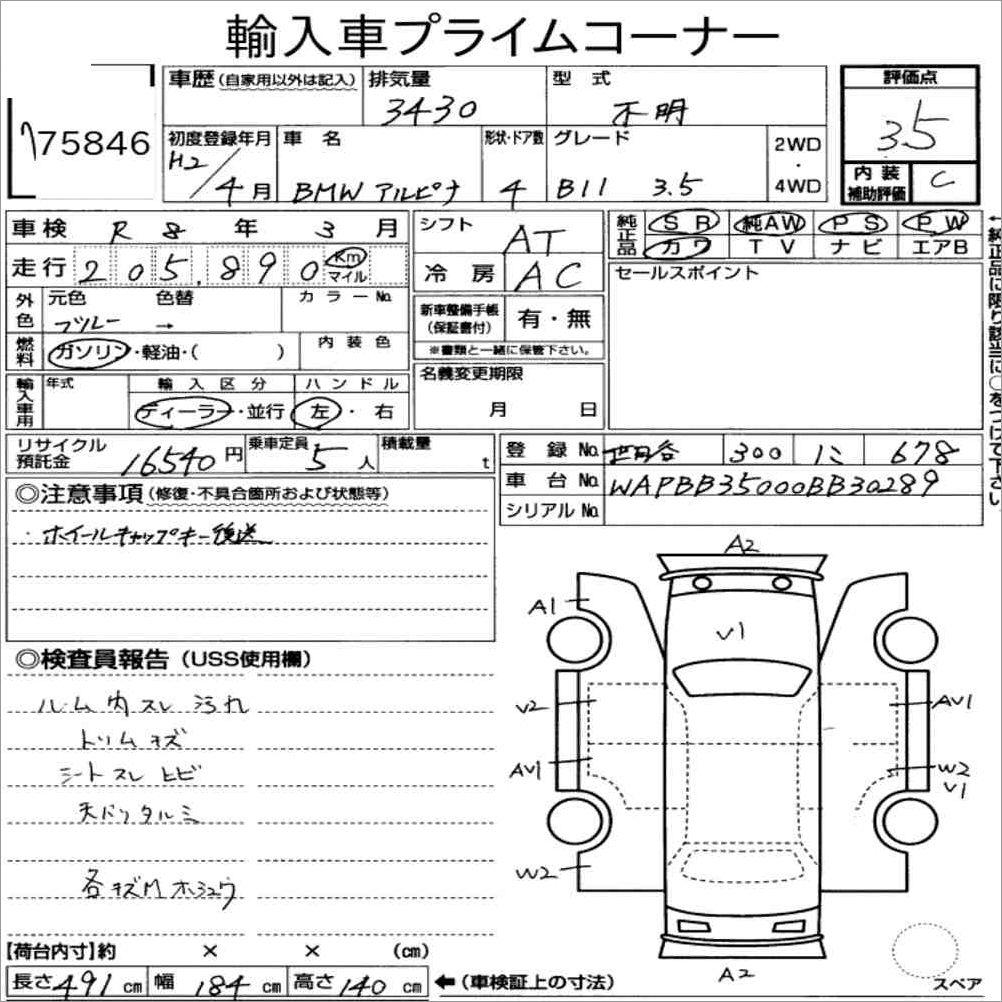 輸入車プライムコーナー
75846
車歴(自家用以外は記入) 排気量 3430 型式 不明 評価点 3.5
初度登録年月 H2/4月 車名 BMW アルピナ 形状・ドア数 4 グレード B11 3.5 2WD・4WD 内装補助評価 C
車検 R8年 3月 シフト AT 純正品 SR 純AW PS PW
走行 205,890 Km マイル 冷房 AC カワ TV ナビ エアB
←純正品に限り該当に○をつけて下さい
外色 元色 色替 カラーNo. 新車整備手帳(保証書付) 有・無 セールスポイント
ブツレー →
燃料 ガソリン・軽油・( ) 内装色 ※書類と一緒に保管下さい。
輸入車用 年式 輸入区分 ハンドル 名義変更期限
ディーラー・並行 左・右 月 日
リサイクル預託金 16540円 乗車定員 5人 積載量 t 登録No. 世田谷 300 678
車台No. WAPBB35000BB30289
シリアルNo.
◎注意事項(修復・不具合箇所および状態等)
・ホイールキャップキー後送
◎検査員報告(USS使用欄)
ルーム内スレ汚れ
トリムキズ
シートスレヒビ
天バリタルミ
各キズMホシュウ
A2
A1
V1
V2
AV1
AV1
W2
V1
W2
A2
スペア
【荷台内寸】約 × × (cm)
長さ 491cm 幅 184cm 高さ 140cm ←(車検証上の寸法)